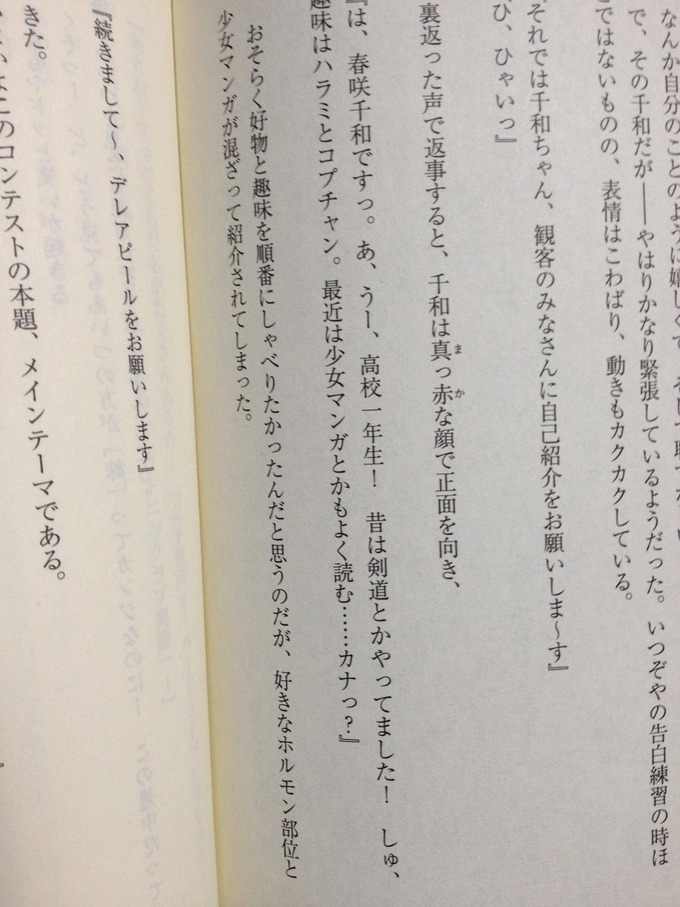 なんか自分のことのように嬉しくて、そして
で、その千和だが――やはりかなり緊張しているようだった。いつぞやの告白練習の時ほ
ではないものの、表情はこわばり、動きもカクカクしている。
それでは千和ちゃん、観客のみなさんに自己紹介をお願いしま〜す』
ひ、ひゃいっ』
裏返った声で返事すると、千和は真っ赤な顔で正面を向き、
『は、春咲千和ですっ。あ、うー、高校一年生！　昔は剣道とかやってました！　しゅ、
趣味はハラミとコプチャン。最近は少女マンガとかもよく読む……カナっ？』
おそらく好物と趣味を順番にしゃべりたかったんだと思うのだが、好きなホルモン部位と
少女マンガが混ざって紹介されてしまった。
『続きまして〜、デレアピールをお願いします』
きた。
このコンテストの本題、メインテーマである。